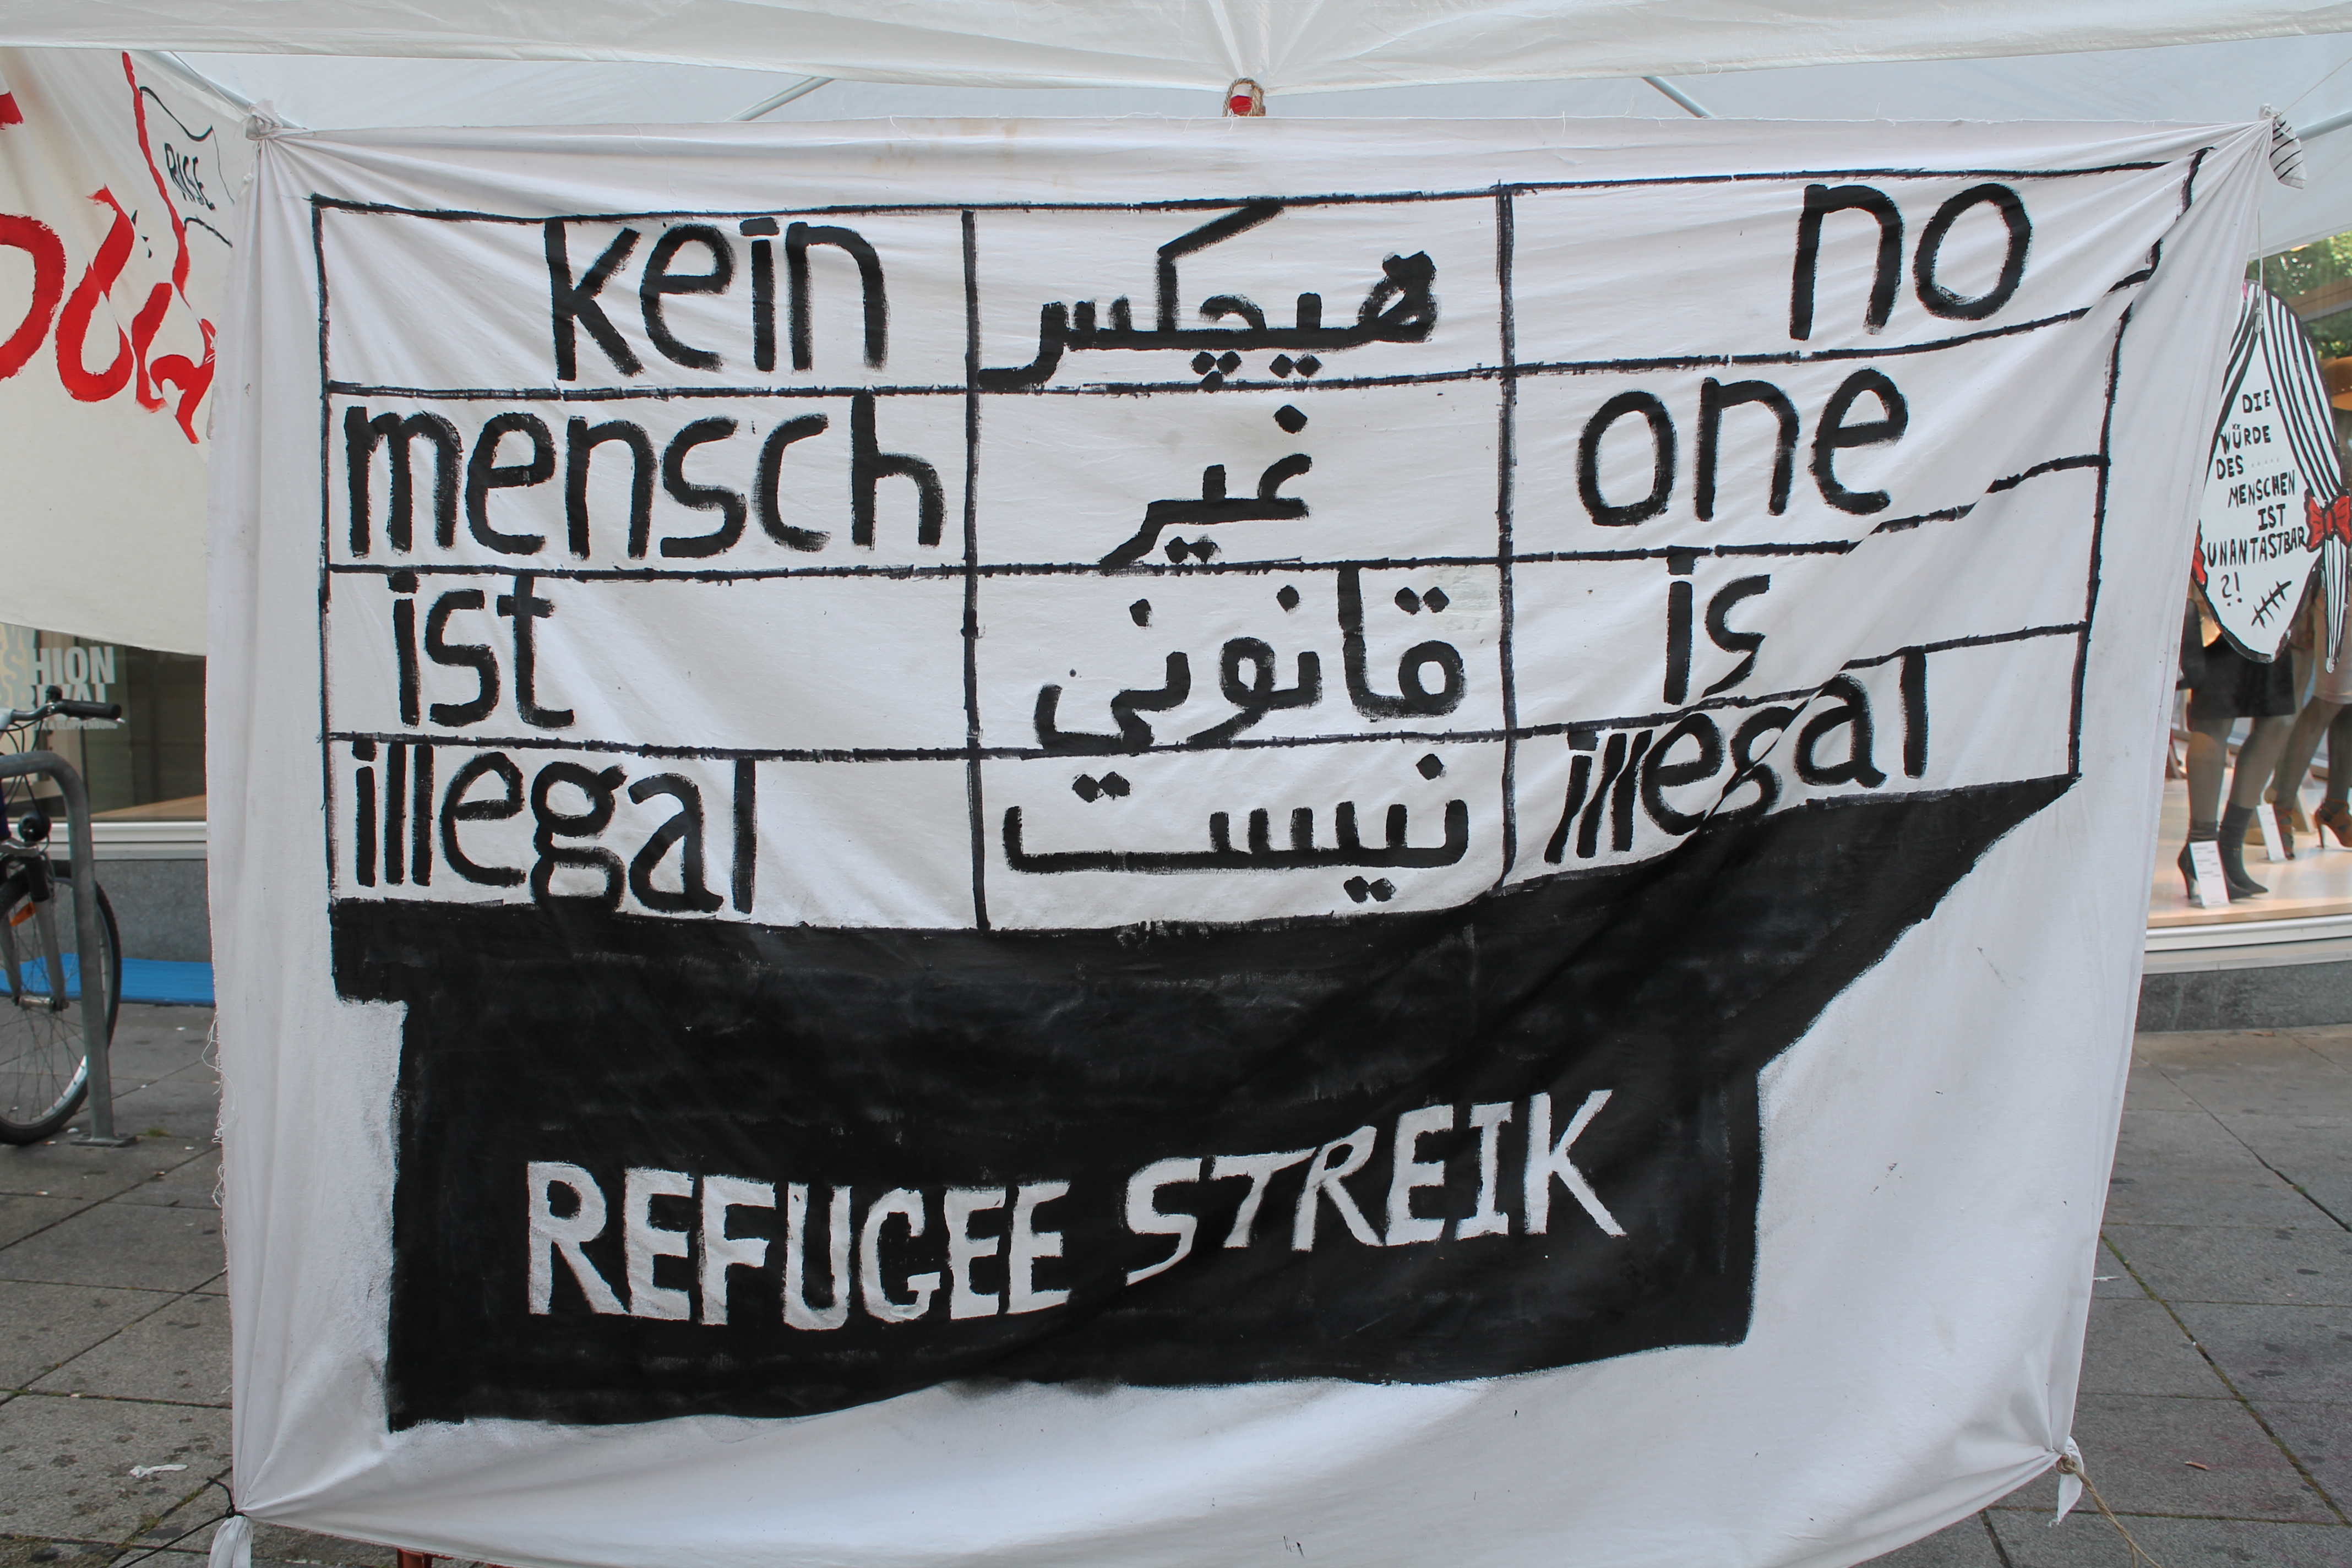 kein
mensch
ist
illegal
هیچکس
غیر
قانوني
نیست
no
one
is
illegal
REFUGEE STREIK
RISE
DIE
WÜRDE
DES
MENSCHEN
IST
UNANTASTBAR
?!